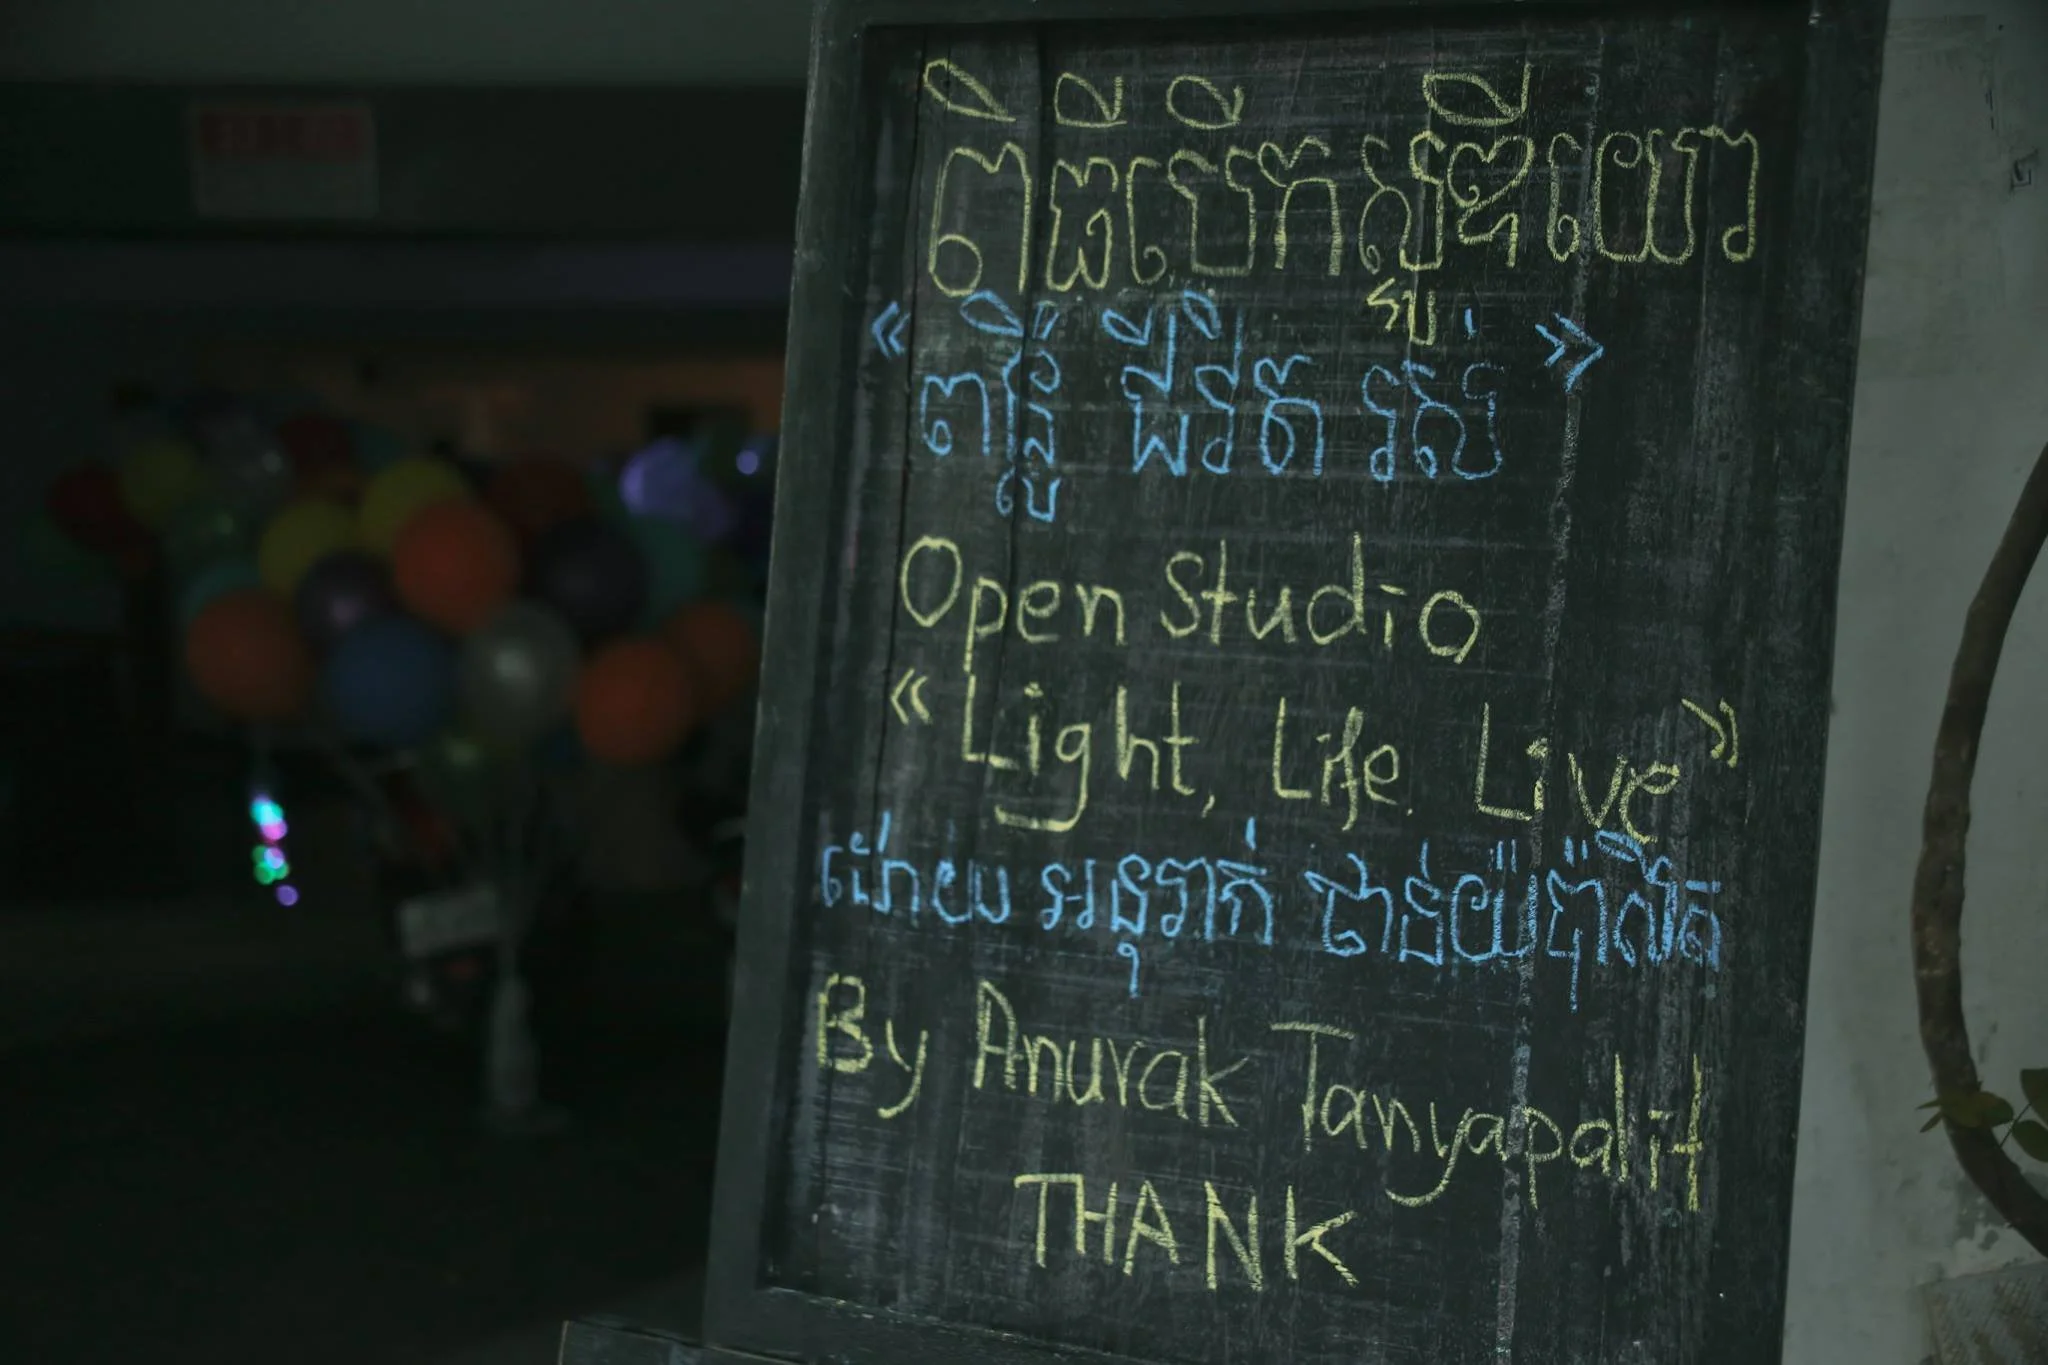 ពិធីបើកស្ទឺឌីយោ
« ពន្លឺ ជីវិត រស់ »
Open Studio
“Light, Life, Live”
ដោយ អនុរាក់ តាន់យ៉ាប៉ាលីត
By Anurak Tanyapalit
THANK